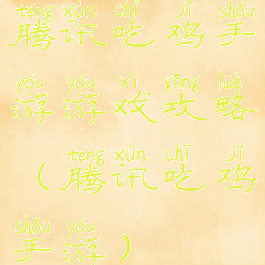 téng xùn chī jī shǒu
腾讯吃鸡手
yóu yóu xì gōng lüè
游游戏攻略
téng xùn chī jī
(腾讯吃鸡
shǒu yóu
手游)